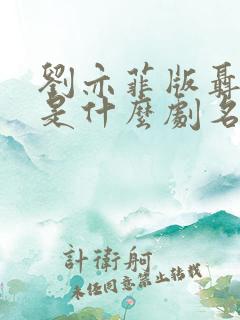 劉亦菲版聶
是什麼劇名
計衛舸
未經同意禁止轉載